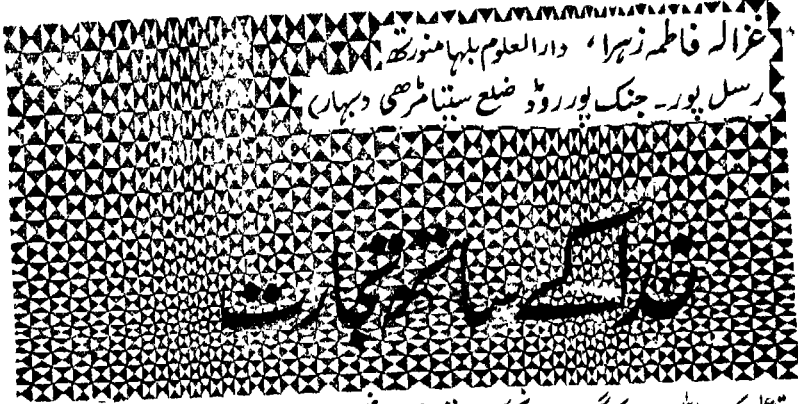 غزالہ فاطمہ زہرا، دارالعلوم بلہا منورتھ
رسل پور۔ جنک پور روڈ ضلع سیتامڑھی (بہار)
خدا کے ساتھ تجارت